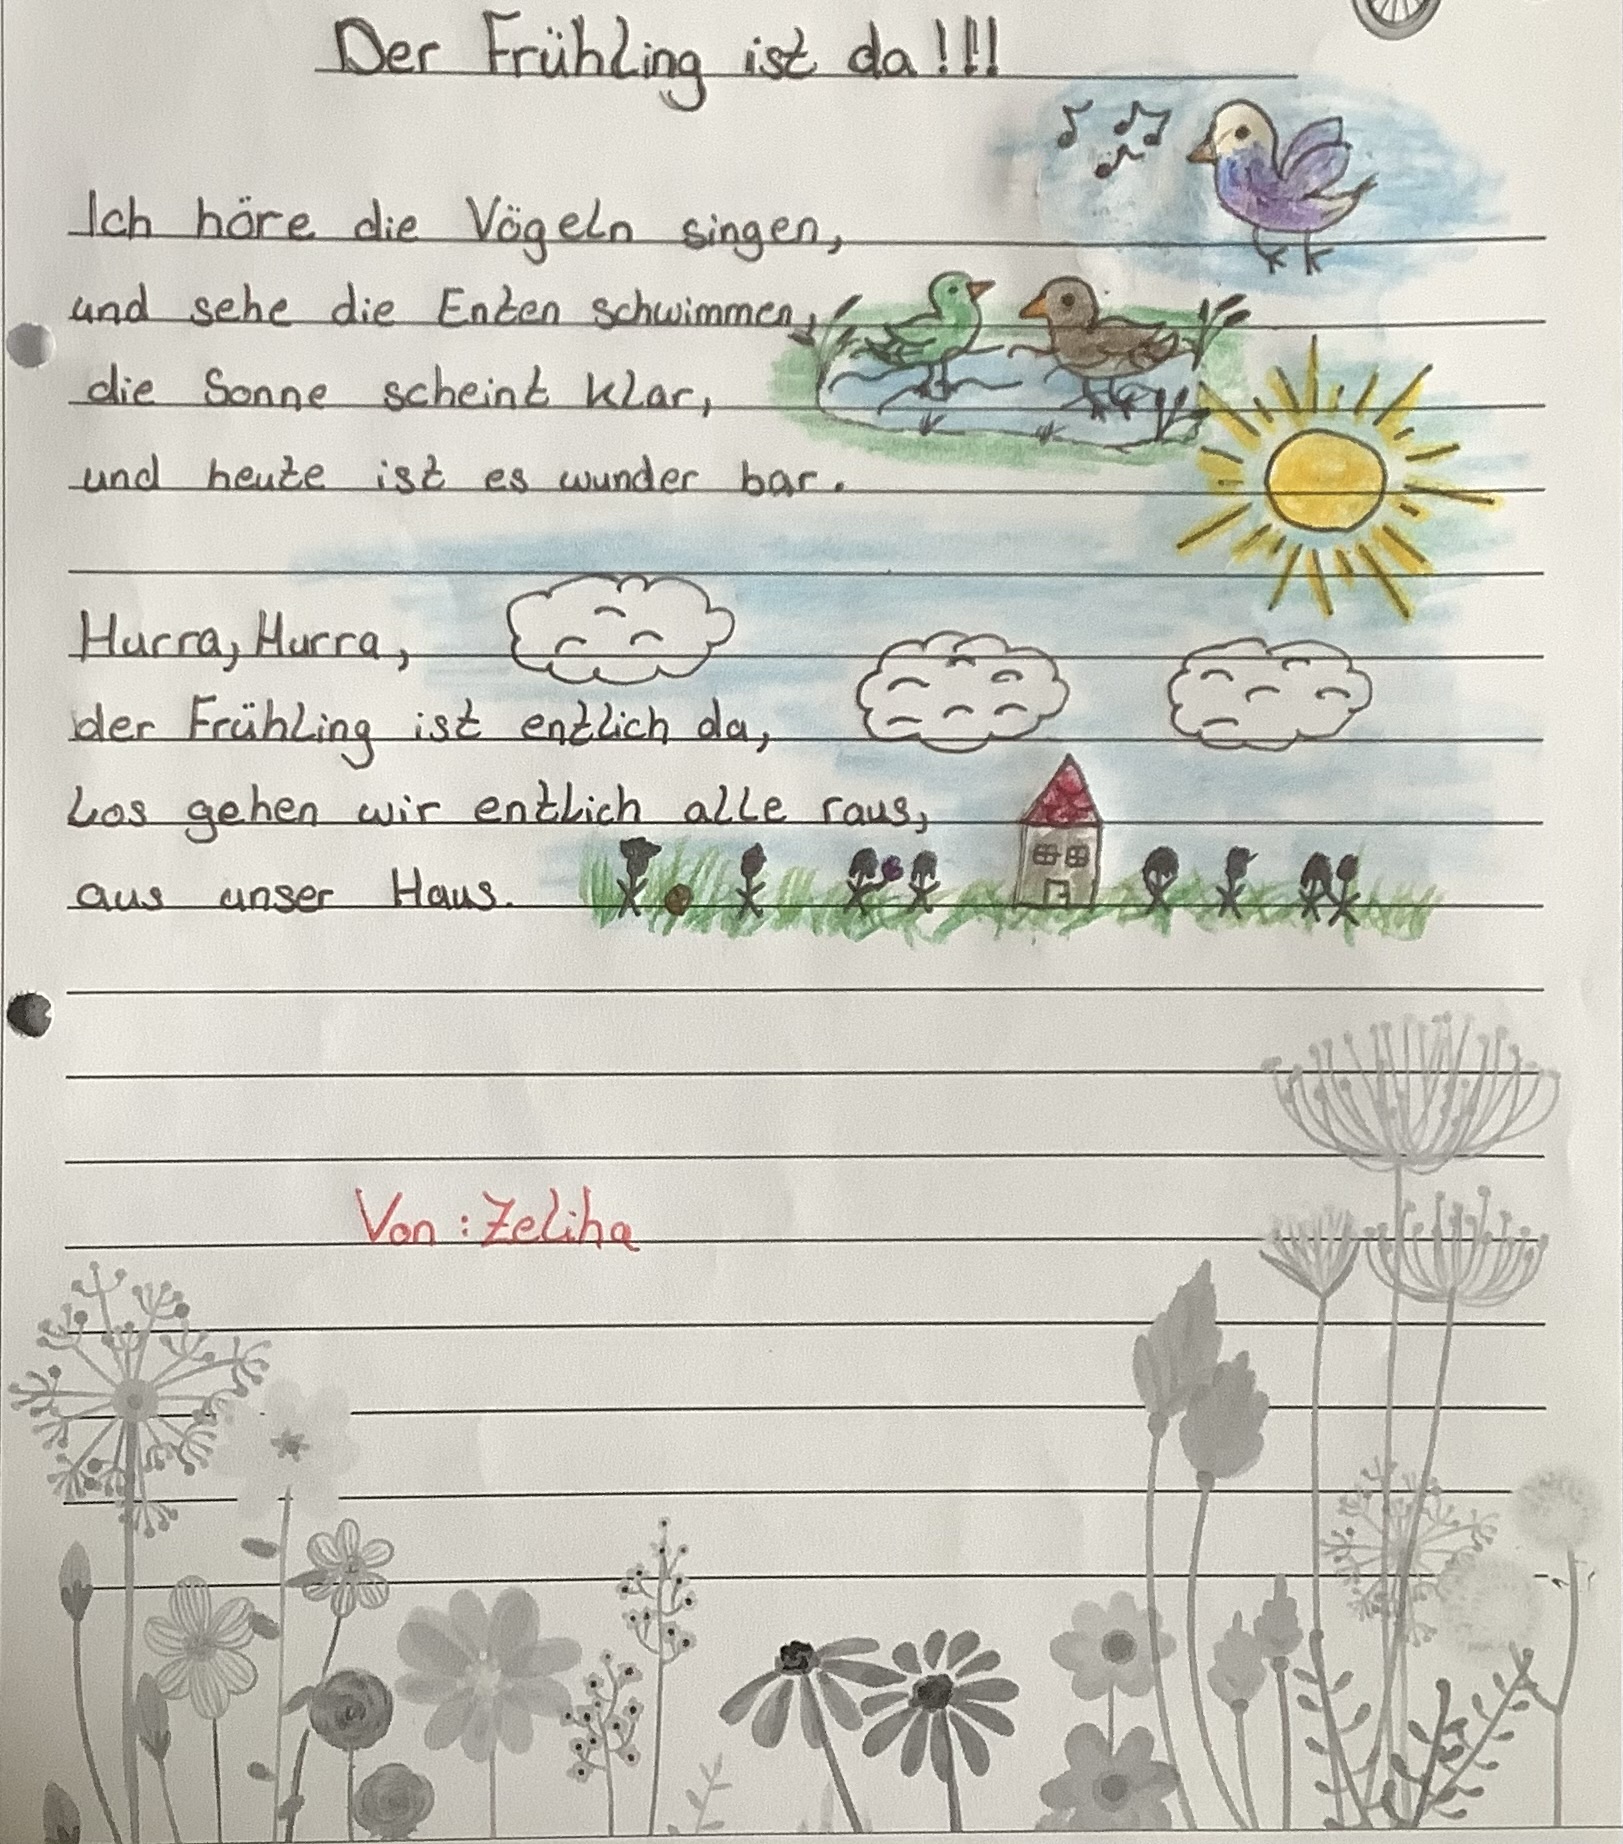 Der Frühling ist da!!!
Ich höre die Vögeln singen,
und sehe die Enten schwimmen,
die Sonne scheint klar,
und heute ist es wunder bar.
Hurra, Hurra,
der Frühling ist entlich da,
Los gehen wir entlich alle raus,
aus unser Haus.
Von : Zeliha